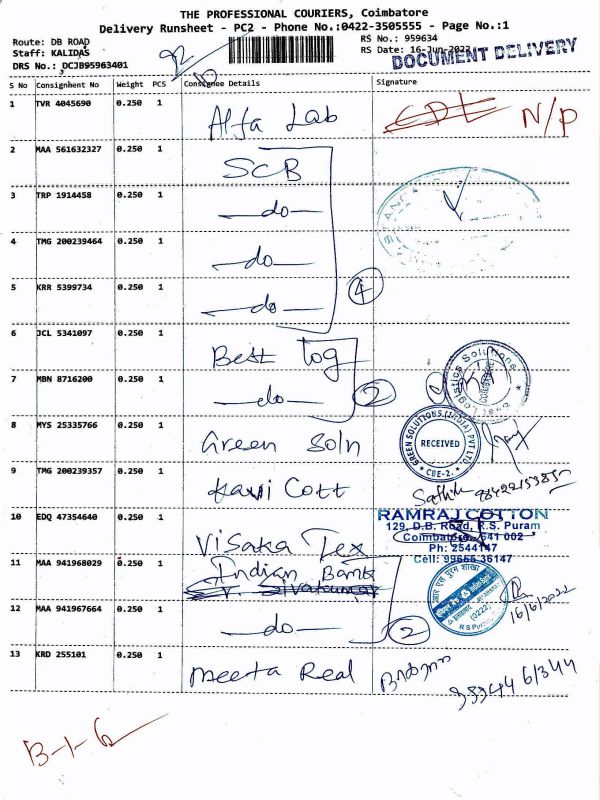 THE PROFESSIONAL COURIERS, Coimbatore
Delivery Runsheet - PC2 - Phone No.:0422-3505555 - Page No.:1
Route: DB ROAD
Staff: KALIDAS
DRS No.: DCJB95963401
92
10
RS No.: 959634
RS Date: 16-Jun-2022
DOCUMENT DELIVERY
S No Consignment No Weight PCS Consignee Details Signature
1 TVR 4045690 0.250 1 Alfa Lab N/P
2 MAA 561632327 0.250 1 SCB
3 TRP 1914458 0.250 1 —do—
4 TMG 200239464 0.250 1 —do—
5 KRR 5399734 0.250 1 —do— 4
6 JCL 5341097 0.250 1 Best Log
7 MBN 8716200 0.250 1 —do— 2
Logistics Solutions
8 MYS 25335766 0.250 1 Green Soln
GREEN SOLUTIONS (INDIA) PVT LTD
RECEIVED
* CBE-2. *
9 TMG 200239357 0.250 1 Kavi Cott
10 EDQ 47354640 0.250 1 Visaka Tex
RAMRAJ COTTON
129, D.B. Road, R.S. Puram
Coimbatore, 641 002
Ph: 2544147
Cell: 99655 36147
11 MAA 941968029 0.250 1 Indian Bank
12 MAA 941967664 0.250 1 —do— 2
16/6/2022
13 KRD 255101 0.250 1 Meeta Real
B-1-6